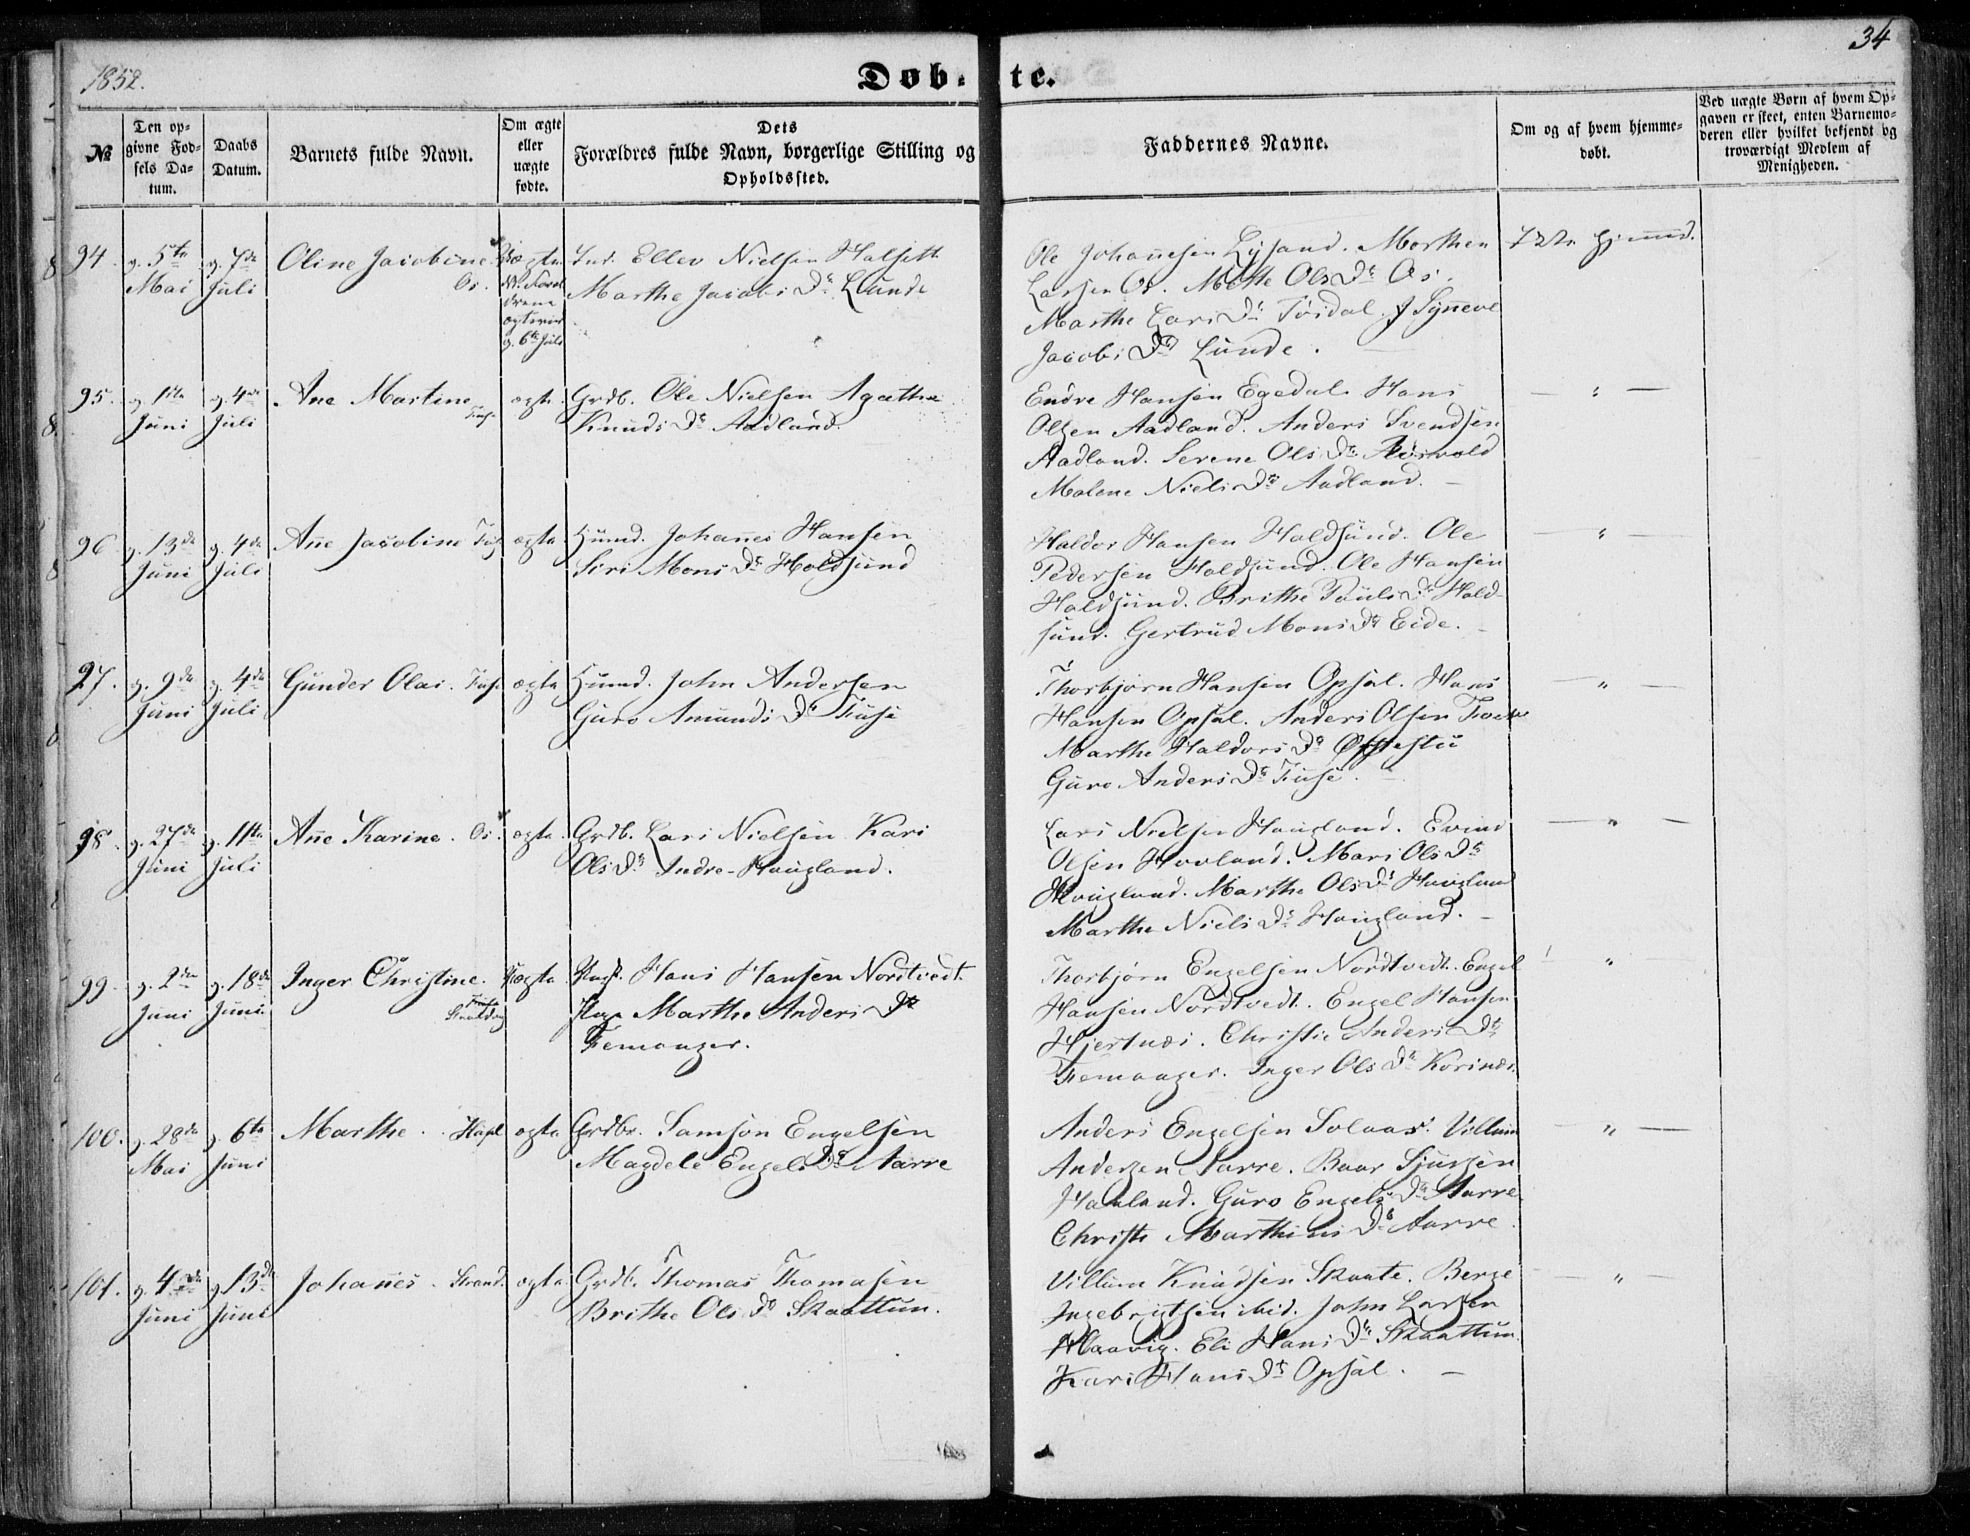 1852.
Døb-
te.
34
№
Den op-
givne Fød-
sels Da-
tum.
Daabs
Datum.
Barnets fulde Navn.
Om ægte
eller
uægte
fødte.
Dets
Forældres fulde Navn, borgerlige Stilling og
Opholdssted.
Faddernes Navne.
Om og af hvem hjemme-
døbt.
Ved uægte Børn af hvem Op-
gaven er skeet, enten Barnemo-
deren eller hvilket bekjendt og
troværdigt Medlem af
Menigheden.
94. g. 5te g. 7de Oline Jacobine Uægte Ellev Nielsen Halseth
Mai Juli Os. Marthe Jacobs Dr Lunde
g. 6te Juli
Ole Johannesen Lysand. Marthen
Larsen Os. Mette Ols Dr Os.
Marthe Lars Dr Tøsdal. Synneve
Jacobs Dr Lunde.
95. g. 4de Ane Martine ægte Grdb. Ole Nielsen Agathe
Juni Juli Fuse Knuds Dr Aadland.
Endre Hansen Egedal Hans
Olsen Aadland. Anders Svendsen
Aadland. Serene Ols Dr
Malene Niels Dr Aadland. —
— " —
96. g. 13de g. 4de Ane Jacobine Fuse ægte Huusmd. Johannes Hansen
Juni Juli Siri Mons Dr Holdsund
Haldor Hansen Holdsund. Ole
Pedersen Holdsund. Ole Hansen
Holdsund. Brithe Pauls Dr Hold-
sund. Gertrud Mons Dr Eide. —
— " —
97. g. 9de g. 4de Gunder Olai. Fuse ægte Huusmd. John Andersen
Juni Juli Guro Amunds Dr Fuse
Thorbjørn Hansen Opsal. Hans
Hansen Opsal. Anders Olsen
Marthe Haldors Dr Øpstestu
Guro Anders Dr Fuse. —
— " —
98. g. 27de g. 11te Ane Karine. Os. ægte. Grdb. Lars Nielsen Kari
Juni Juli Ols Dr Indre-Haugland.
Lars Nielsen Haugland. Evind
Olsen Hovland. Mari Ols Dr
Haugland. Marthe Ols Dr Haugland
Marthe Niels Dr Haugland. —
— " —
99. g. 2den g. 18de Inger Christine. Uægte Hans Hansen Nordtvedt.
Juni Juni Strandvig Pige Marthe Anders Dr
Femanger.
Thorbjørn Engelsen Nordtvedt. Engel
Hansen Nordtvedt. Engel Hansen
Hjertnæs. Christie Anders Dr
Femanger. Inger Ols Dr Korsnæs.
"
100. g. 28de g. 6te Marthe. ægte Grdbr. Samson Engelsen
Mai Juni Magdele Engels Dr Aarre
Anders Engelsen Solaas. Villum
Andersen Aarre. Baar Sjursen
Havland. Guro Engels Dr Aarre
Christi Marthinis Dr Aarre.
— " —
101. g. 4de g. 13de Johanes. Strand. ægte Grdb. Thomas Thomasen
Juni Juni Brithe Ols Dr Skaattun.
Villum Knudsen Skaate. Berge
Ingebrigtsen ibid. John Larsen
Haavig. Eli Hans Dr Skaattun
Kari Hans Dr Opsal. —
— " —